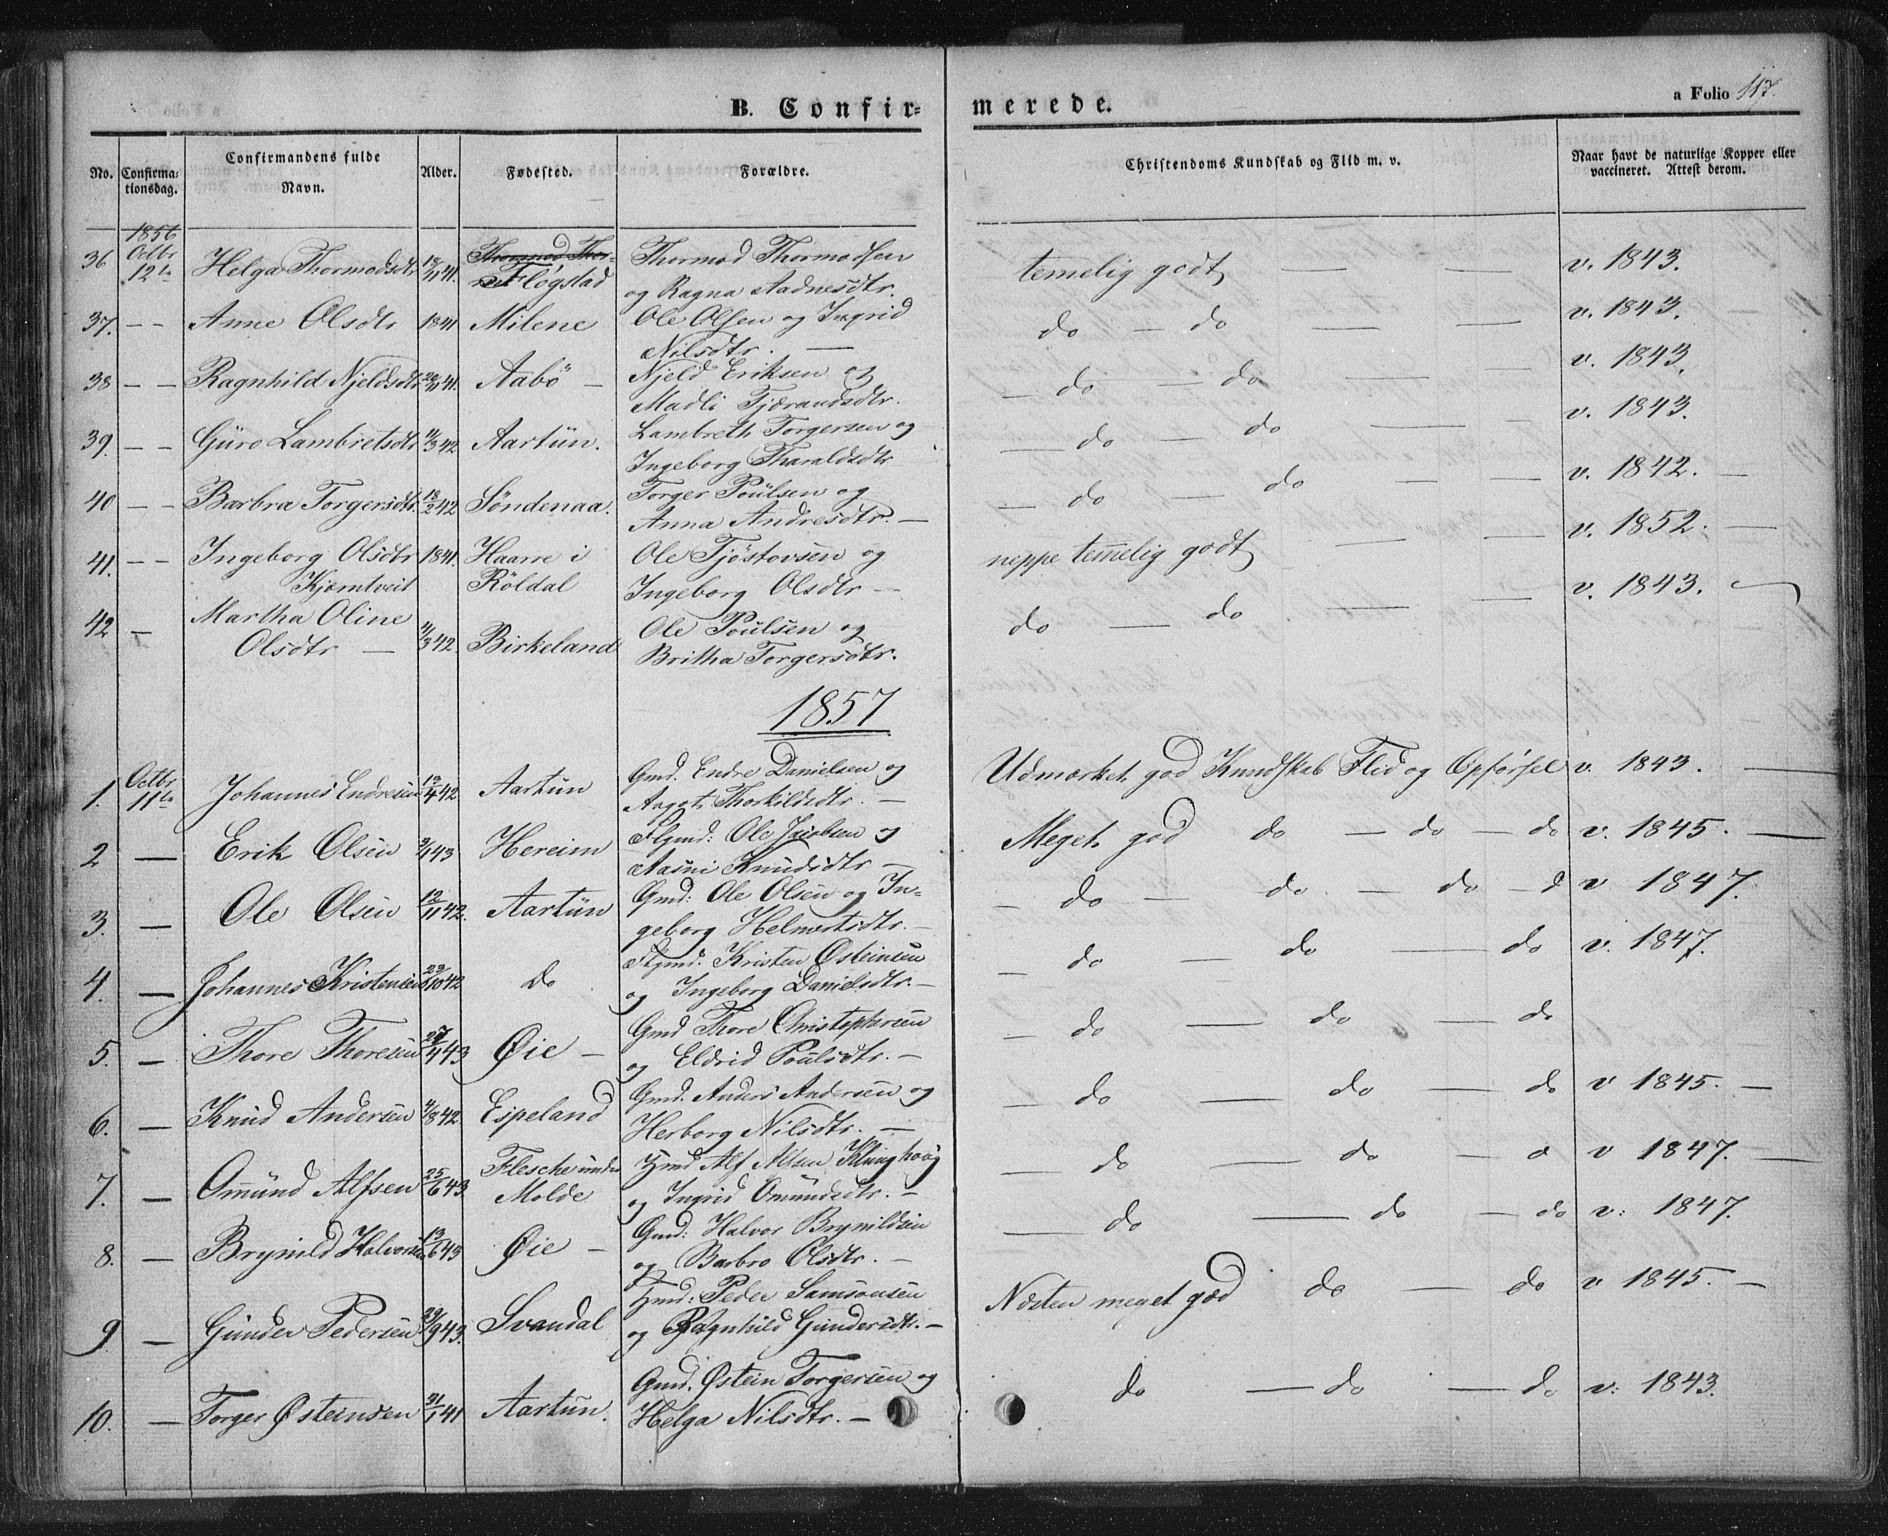 B. Confirmerede.
a Folio 117.
No. Confirmationsdag. Confirmandens fulde Navn. Alder. Fødested. Forældre. Christendoms Kundskab og Flid m. v. Naar havt de naturlige Kopper eller vaccineret. Attest derom.
1856
36 Octbr 12te Helga Thormodsdtr 18/11 41. Thormod Thor- Fløgstad Thormod Thormodsen og Ragna Aadnesdtr. temelig godt — — v. 1843.
37. — — Anne Olsdtr 1841 Milene Ole Olsen og Ingrid Nilsdtr. — do — do — — v. 1843.
38 — — Ragnhild Njeldsdtr 20/11 41. Aabö — Njeld Eriksen og Madli Tjærandsdtr. — do — do — — v. 1843.
39. — — Gŭro Lambretsdtr 11/3 42 Aartŭn. Lambreth Torgersen og Ingeborg Tharaldsdtr — do — do — — v. 1843.
40 — — Barbra Torgersdtr. 18/2 42 Söndenaa. Torger Poŭlsen og Anna Andresdtr. — — do — do — — v. 1842. —
41. — — Ingeborg Olsdtr Kjærntveit 1841. Haarre i Röldal Ole Tjöstovsen og Ingeborg Olsdtr — neppe temelig godt — — v. 1852. —
42 — Martha Oline Olsdtr — 11/3 42. Birkeland Ole Poŭlsen og Britha Torgersdtr. do — do — — v. 1843. —
1857
1. Octbr 11te Johannes Endresen 19/4 42 Aartŭn Gmd. Endre Danielsen og Aagot Thorkildsdtr. — Udmærket god Kundskab Flid og Opførsel v. 1843. —
2 — Erik Olsen 3/1 43 Hereim Flgmd: Ole Jacobsen og Aasni Knŭdsdtr — Meget god do — do — do v. 1845. —
3. — Ole Olsen 12/11 42. Aartŭn Gmd: Ole Olsen og Ingeborg Helmertsdtr. — — do — do — do — d v 1847.
4. — Johannes Kristensen 29/10 42 do Flgmd. Kristen Østeinsen og Ingeborg Danielsdtr. — — do do — do v. 1847.
5. — Thore Thoresen 27/4 43 Øie — Gmd Thore Christophersen og Eldrid Poŭlsdtr. — — do — do — do
6. — Knŭd Andersen 4/8 42. Espeland Gmd. Anders Andersen og Herborg Nilsdtr. — — do — do — do v 1845. —
7. — Omŭnd Alfsen 25/6 43. Flesche under Molde Hmd Alf Alfsen Klŭnghoŭg og Ingrid Omŭndsdtr. — — do — do — d v 1847. —
8. — Brynild Halvorsen 13/6 43 Øie — Gmd: Halvor Brynildsen og Barbro Olsdtr. — — do — do — do v: 1847.
9 — Gŭnder Pedersen 29/9 43. Svandal Hmd: Peder Samsonsen og Ragnhild Gŭndersdtr. — Næsten meget god do — do v 1845. —
10. — Torger Østeinsen 21/1 41 Aartŭn. Gmd. Østein Torgersen og Helga Nilsdtr. — do — do — do v: 1843.